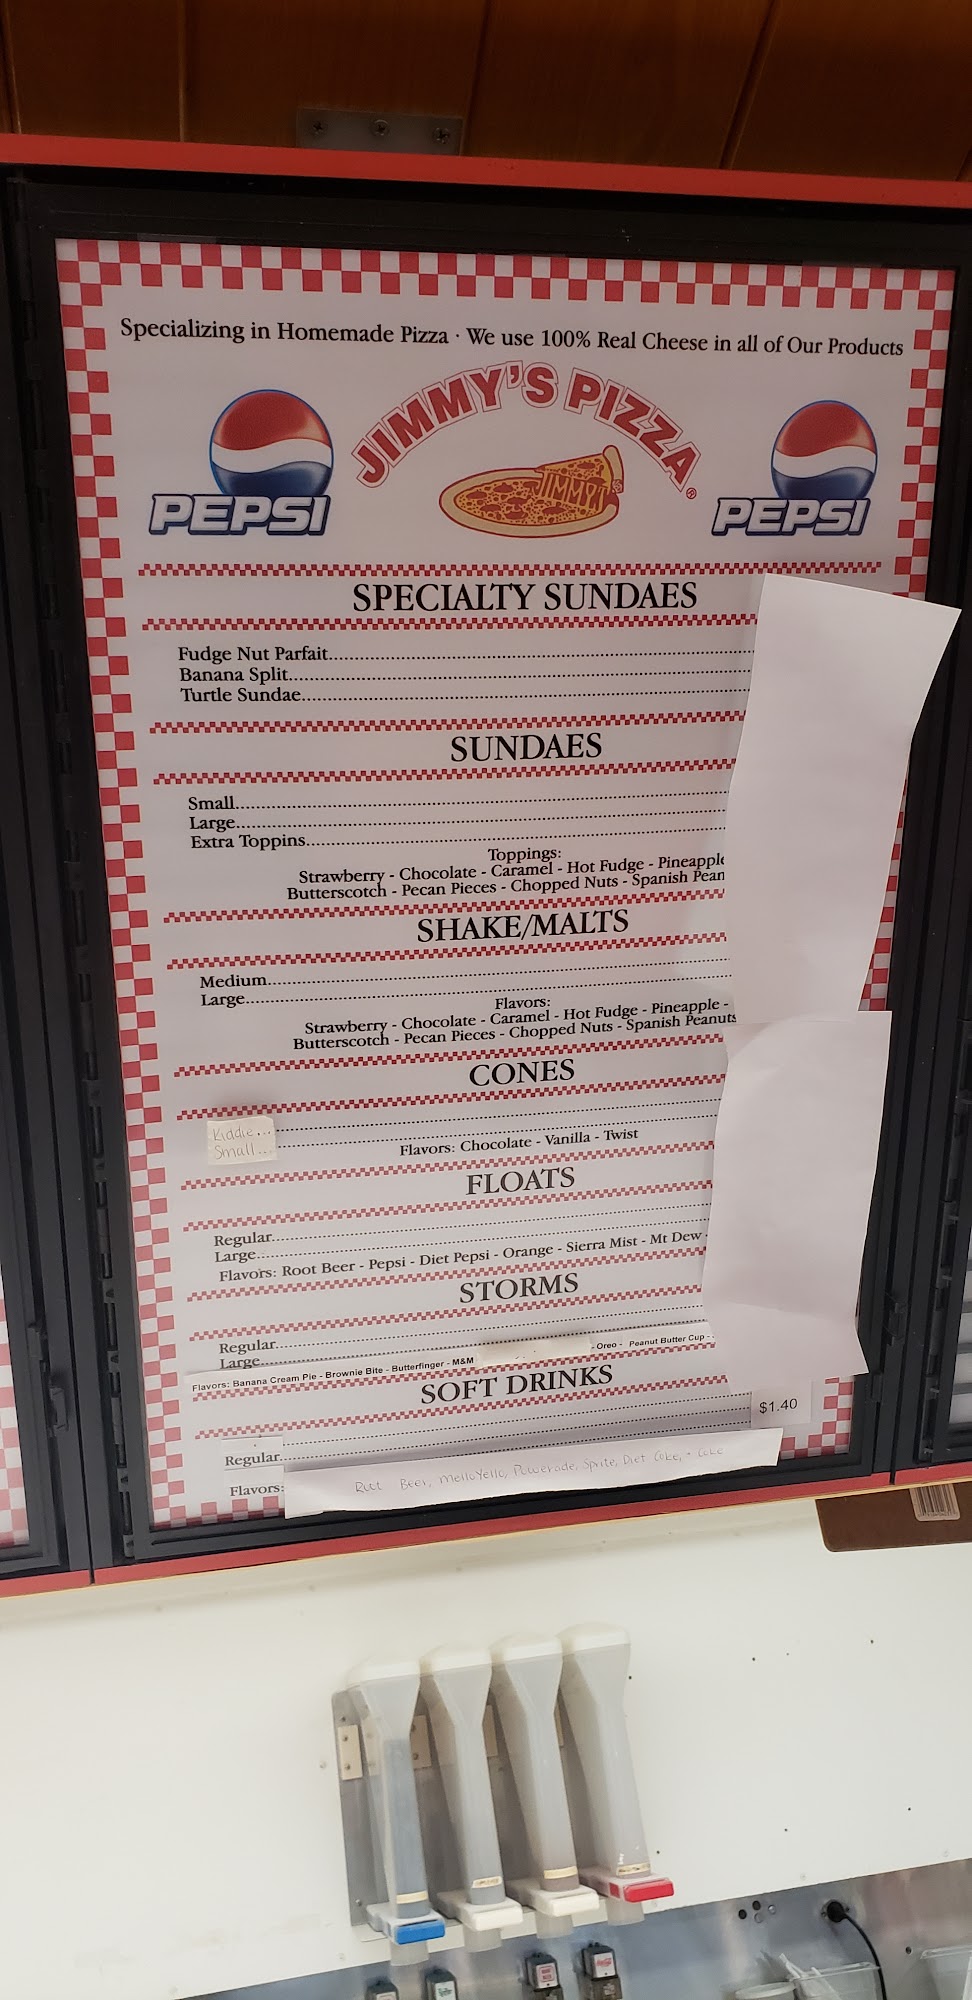 Specializing in Homemade Pizza · We use 100% Real Cheese in all of Our Products
JIMMY'S PIZZA®
JIMMY'S
PEPSI
PEPSI
SPECIALTY SUNDAES
Fudge Nut Parfait
Banana Split
Turtle Sundae
SUNDAES
Small
Large
Extra Toppins
Toppings:
Strawberry - Chocolate - Caramel - Hot Fudge - Pineapple
Butterscotch - Pecan Pieces - Chopped Nuts - Spanish Pean
SHAKE/MALTS
Medium
Large
Flavors:
Strawberry - Chocolate - Caramel - Hot Fudge - Pineapple -
Butterscotch - Pecan Pieces - Chopped Nuts - Spanish Peanuts
CONES
Kiddie...
Small...
Flavors: Chocolate - Vanilla - Twist
FLOATS
Regular
Large
Flavors: Root Beer - Pepsi - Diet Pepsi - Orange - Sierra Mist - Mt Dew
STORMS
Regular
Large
Flavors: Banana Cream Pie - Brownie Bite - Butterfinger - M&M - Oreo - Peanut Butter Cup -
SOFT DRINKS
$1.40
Regular
Flavors: Root Beer, Mello Yello, Powerade, Sprite, Diet Coke, + Coke